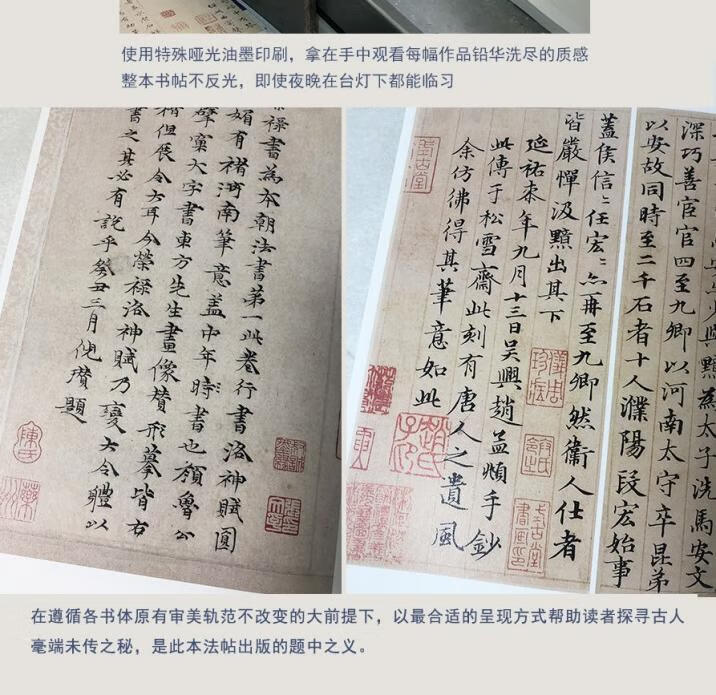 使用特殊哑光油墨印刷，拿在手中观看每幅作品铅华洗尽的质感
整本书帖不反光，即使夜晚在台灯下都能临习
祿書為本朝法書第一此卷行書洛神賦圓
媚有褚河南筆意蓋中年時書也顏魯公
擘窠大字書東方先生畫像贊形摹皆右
楷但展令大耳今榮祿洛神賦乃變大令體以
書之其必有說乎癸丑三月倪瓚題
與黯為太子洗馬安文
深巧善宦官四至九卿以河南太守卒昆弟
以安故同時至二千石者十人濮陽段宏始事
蓋侯信〻任宏〻亦再至九卿然衛人仕者
皆嚴憚汲黯出其下
延祐柒年九月十三日吳興趙孟頫手鈔
此傳于松雪齋此刻有唐人之遺風
余仿彿得其筆意如此
趙氏子昂
在遵循各书体原有审美轨范不改变的大前提下，以最合适的呈现方式帮助读者探寻古人
毫端未传之秘，是此本法帖出版的题中之义。